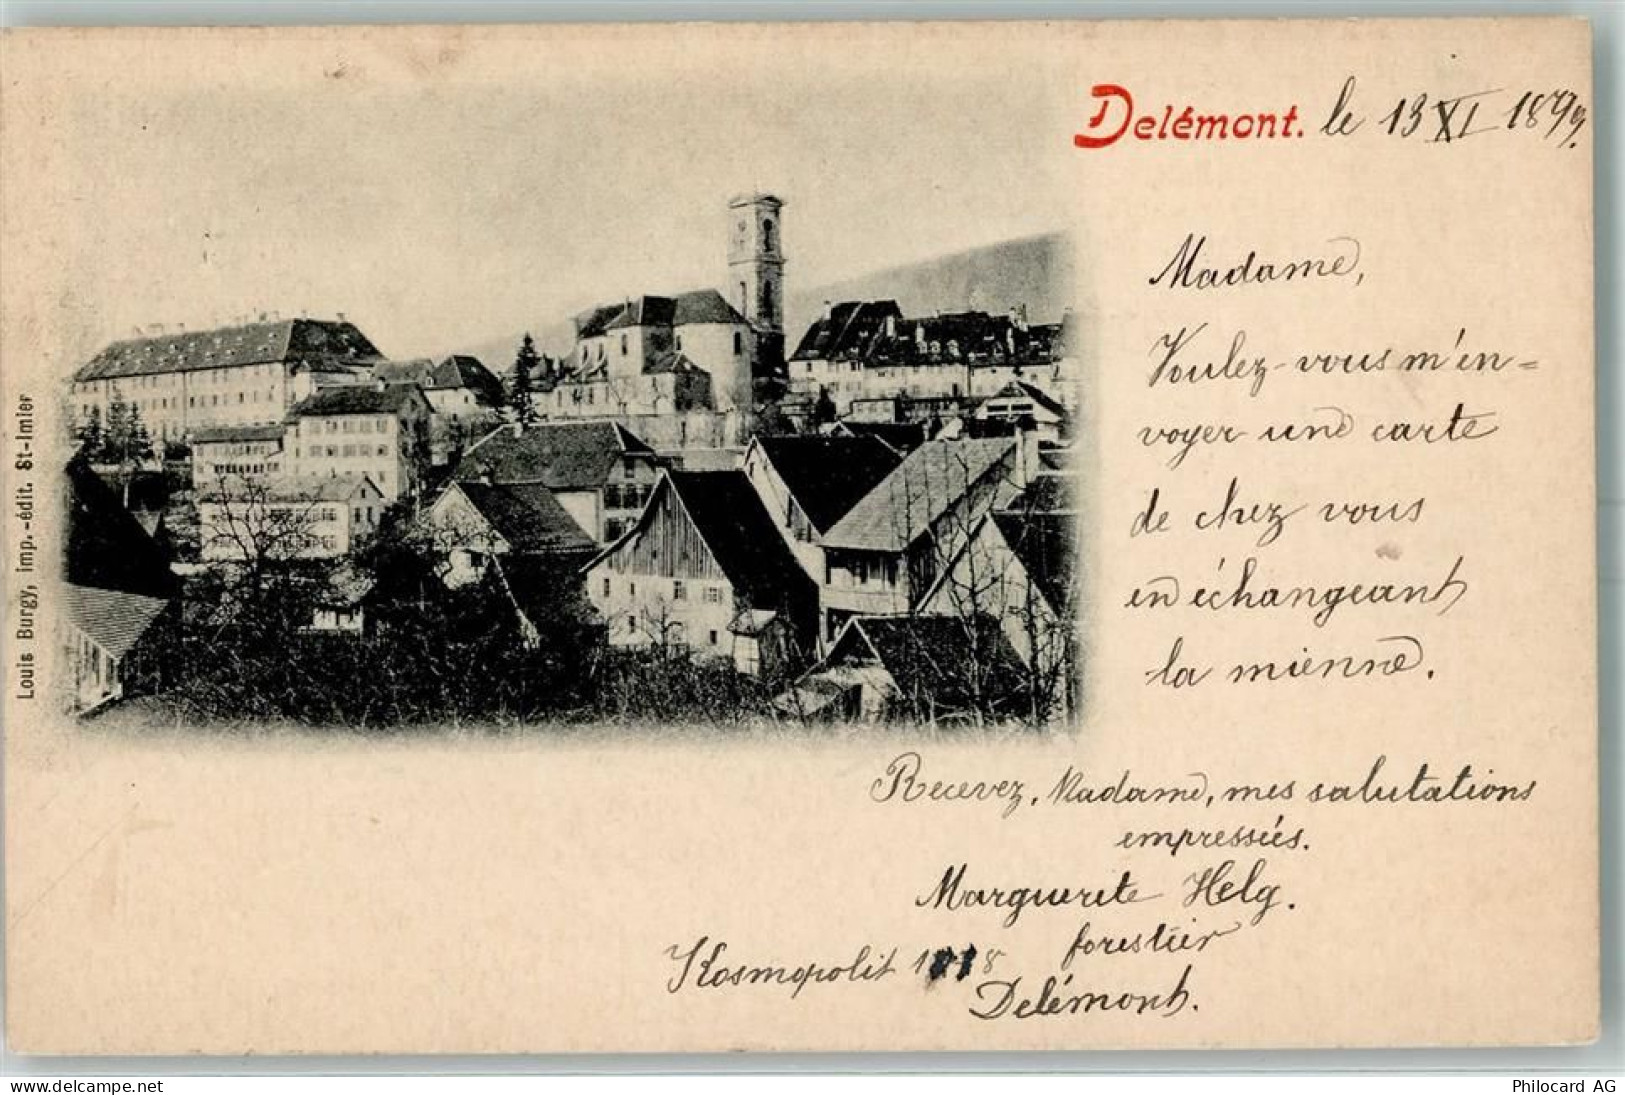 Delémont. le 13 XI 1899.
Madame,
Voulez-vous m'en=
voyer une carte
de chez vous
en échangeant
la mienne.
Recevez, Madame, mes salutations
empressées.
Marguerite Helg.
forestier
Delémont.
Kosmopolit
Louis Burgy, imp.-édit. St-Imier
www.delcampe.net
Philocard AG